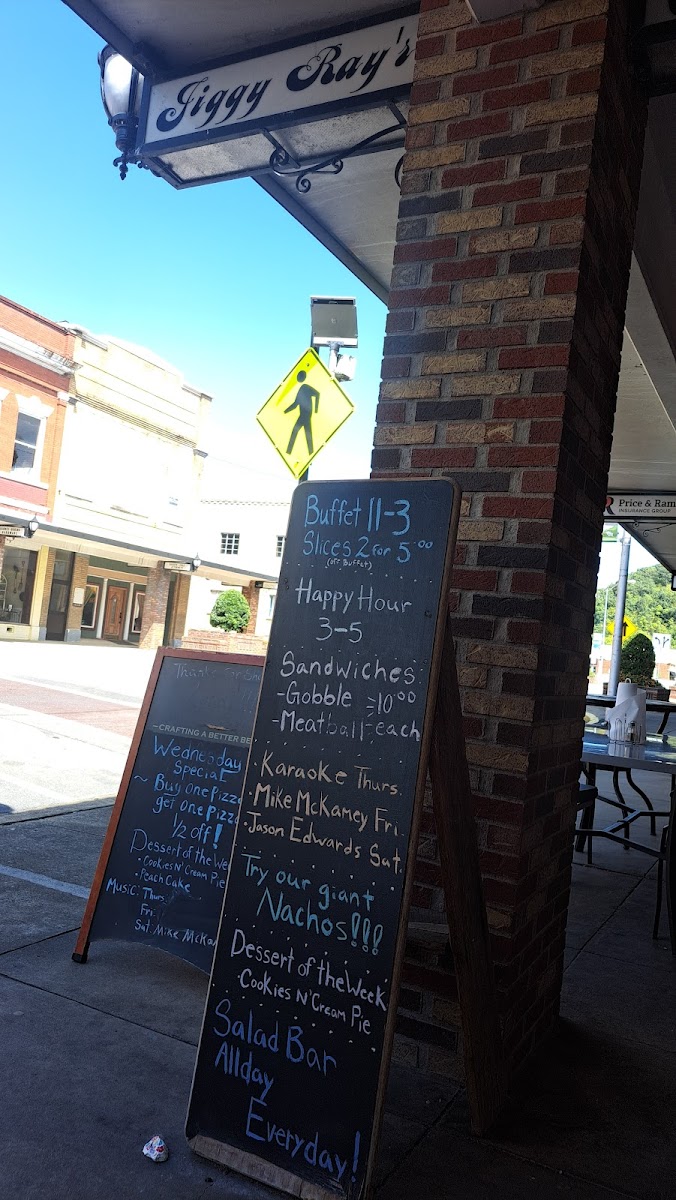 Jiggy Ray's
Price & Ram
INSURANCE GROUP
Buffet 11-3
Slices 2 for 5.00
(off Buffet)
Happy Hour
3-5
Sandwiches
-Gobble -10.00
-Meatball- each
· Karaoke Thurs.
· Mike McKamey Fri.
· Jason Edwards Sat.
Try our giant
Nachos!!!
Dessert of the Week
· Cookies N' Cream Pie
Salad Bar
Allday
Everyday!
CRAFTING A BETTER BE
Wednesday
Special
~ Buy one Pizza
get one Pizza
1/2 off!
Dessert of the We
· Cookies N' Cream Pie
· Peach Cake
Music: Thurs.
Fri.
Sat. Mike McKa